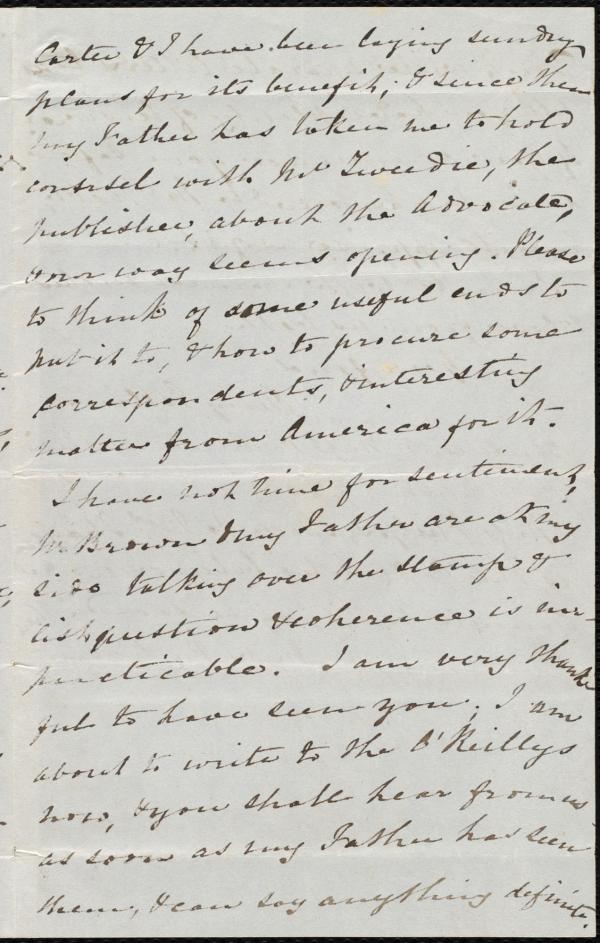 Carter & I have been laying sundry
plans for its benefit; & since then
my Father has taken me to hold
counsel with Mr Tweedie, the
publisher, about the Advocate,
& our way seems opening. Please
to think of some useful ends to
put it to, & how to procure some
correspondents, & interesting
matter from America for it.
I have not time for sentiment,
Mr Brown & my Father are at my
side talking over the stamp &
question & coherence is im-
practicable. I am very thank
ful to have seen you; I am
about to write to the O'Reillys
now, & you shall hear from us
as soon as my Father has seen
them, & can say anything definite.